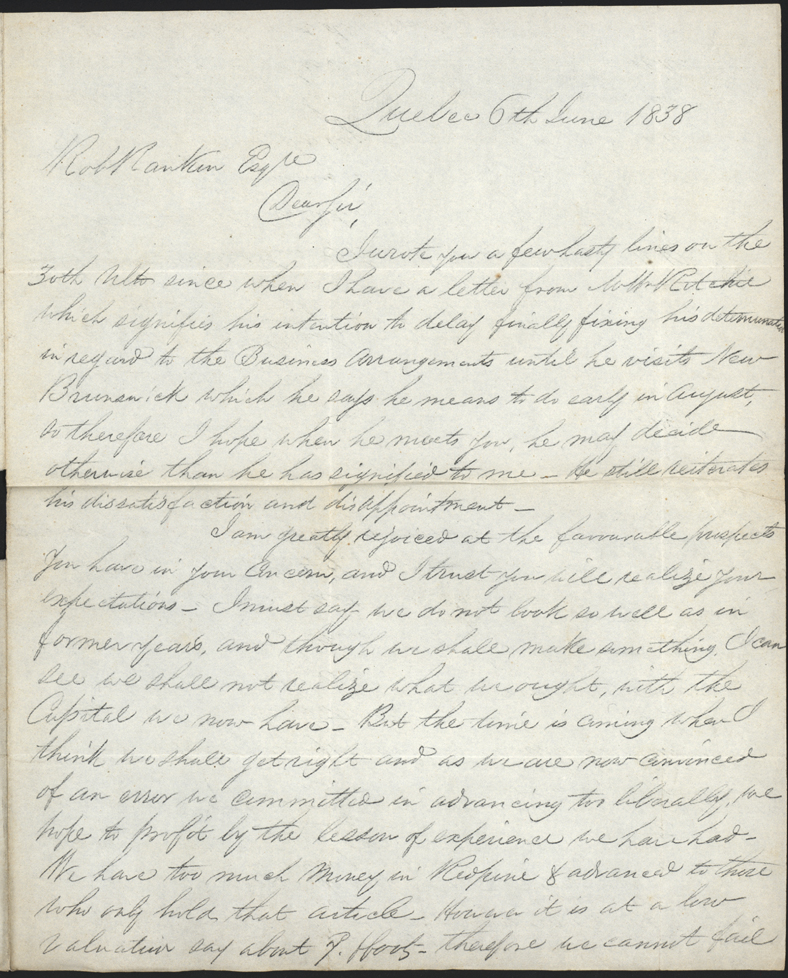 Quebec 6th June 1838
Rob Rankin Esqre
Dear Sir,
I wrote you a few hasty lines on the
30th Ulto since when I have a letter from Mr Ritchie
which signifies his intention to delay finally fixing his determination
in regard to the Business Arrangements until he visits New
Brunswick which he says he means to do early in August,
so therefore I hope when he meets you, he may decide
otherwise than he has signified to me – He still reiterates
his dissatisfaction and disappointment –
I am greatly rejoiced at the favourable prospects
you have in your Concern, and I trust you will realize your
expectations – I must say we do not look so well as in
former years, and though we shall make something, I can
see we shall not realize what we ought, with the
Capital we now have – But the time is coming when I
think we shall get right and as we are now convinced
of an error we committed in advancing too liberally, we
hope to profit by the lesson of experience we have had –
We have too much Money in Redpine & advanced to those
who only hold that article – However it is at a low
valuation say about 7. – therefore we cannot fail